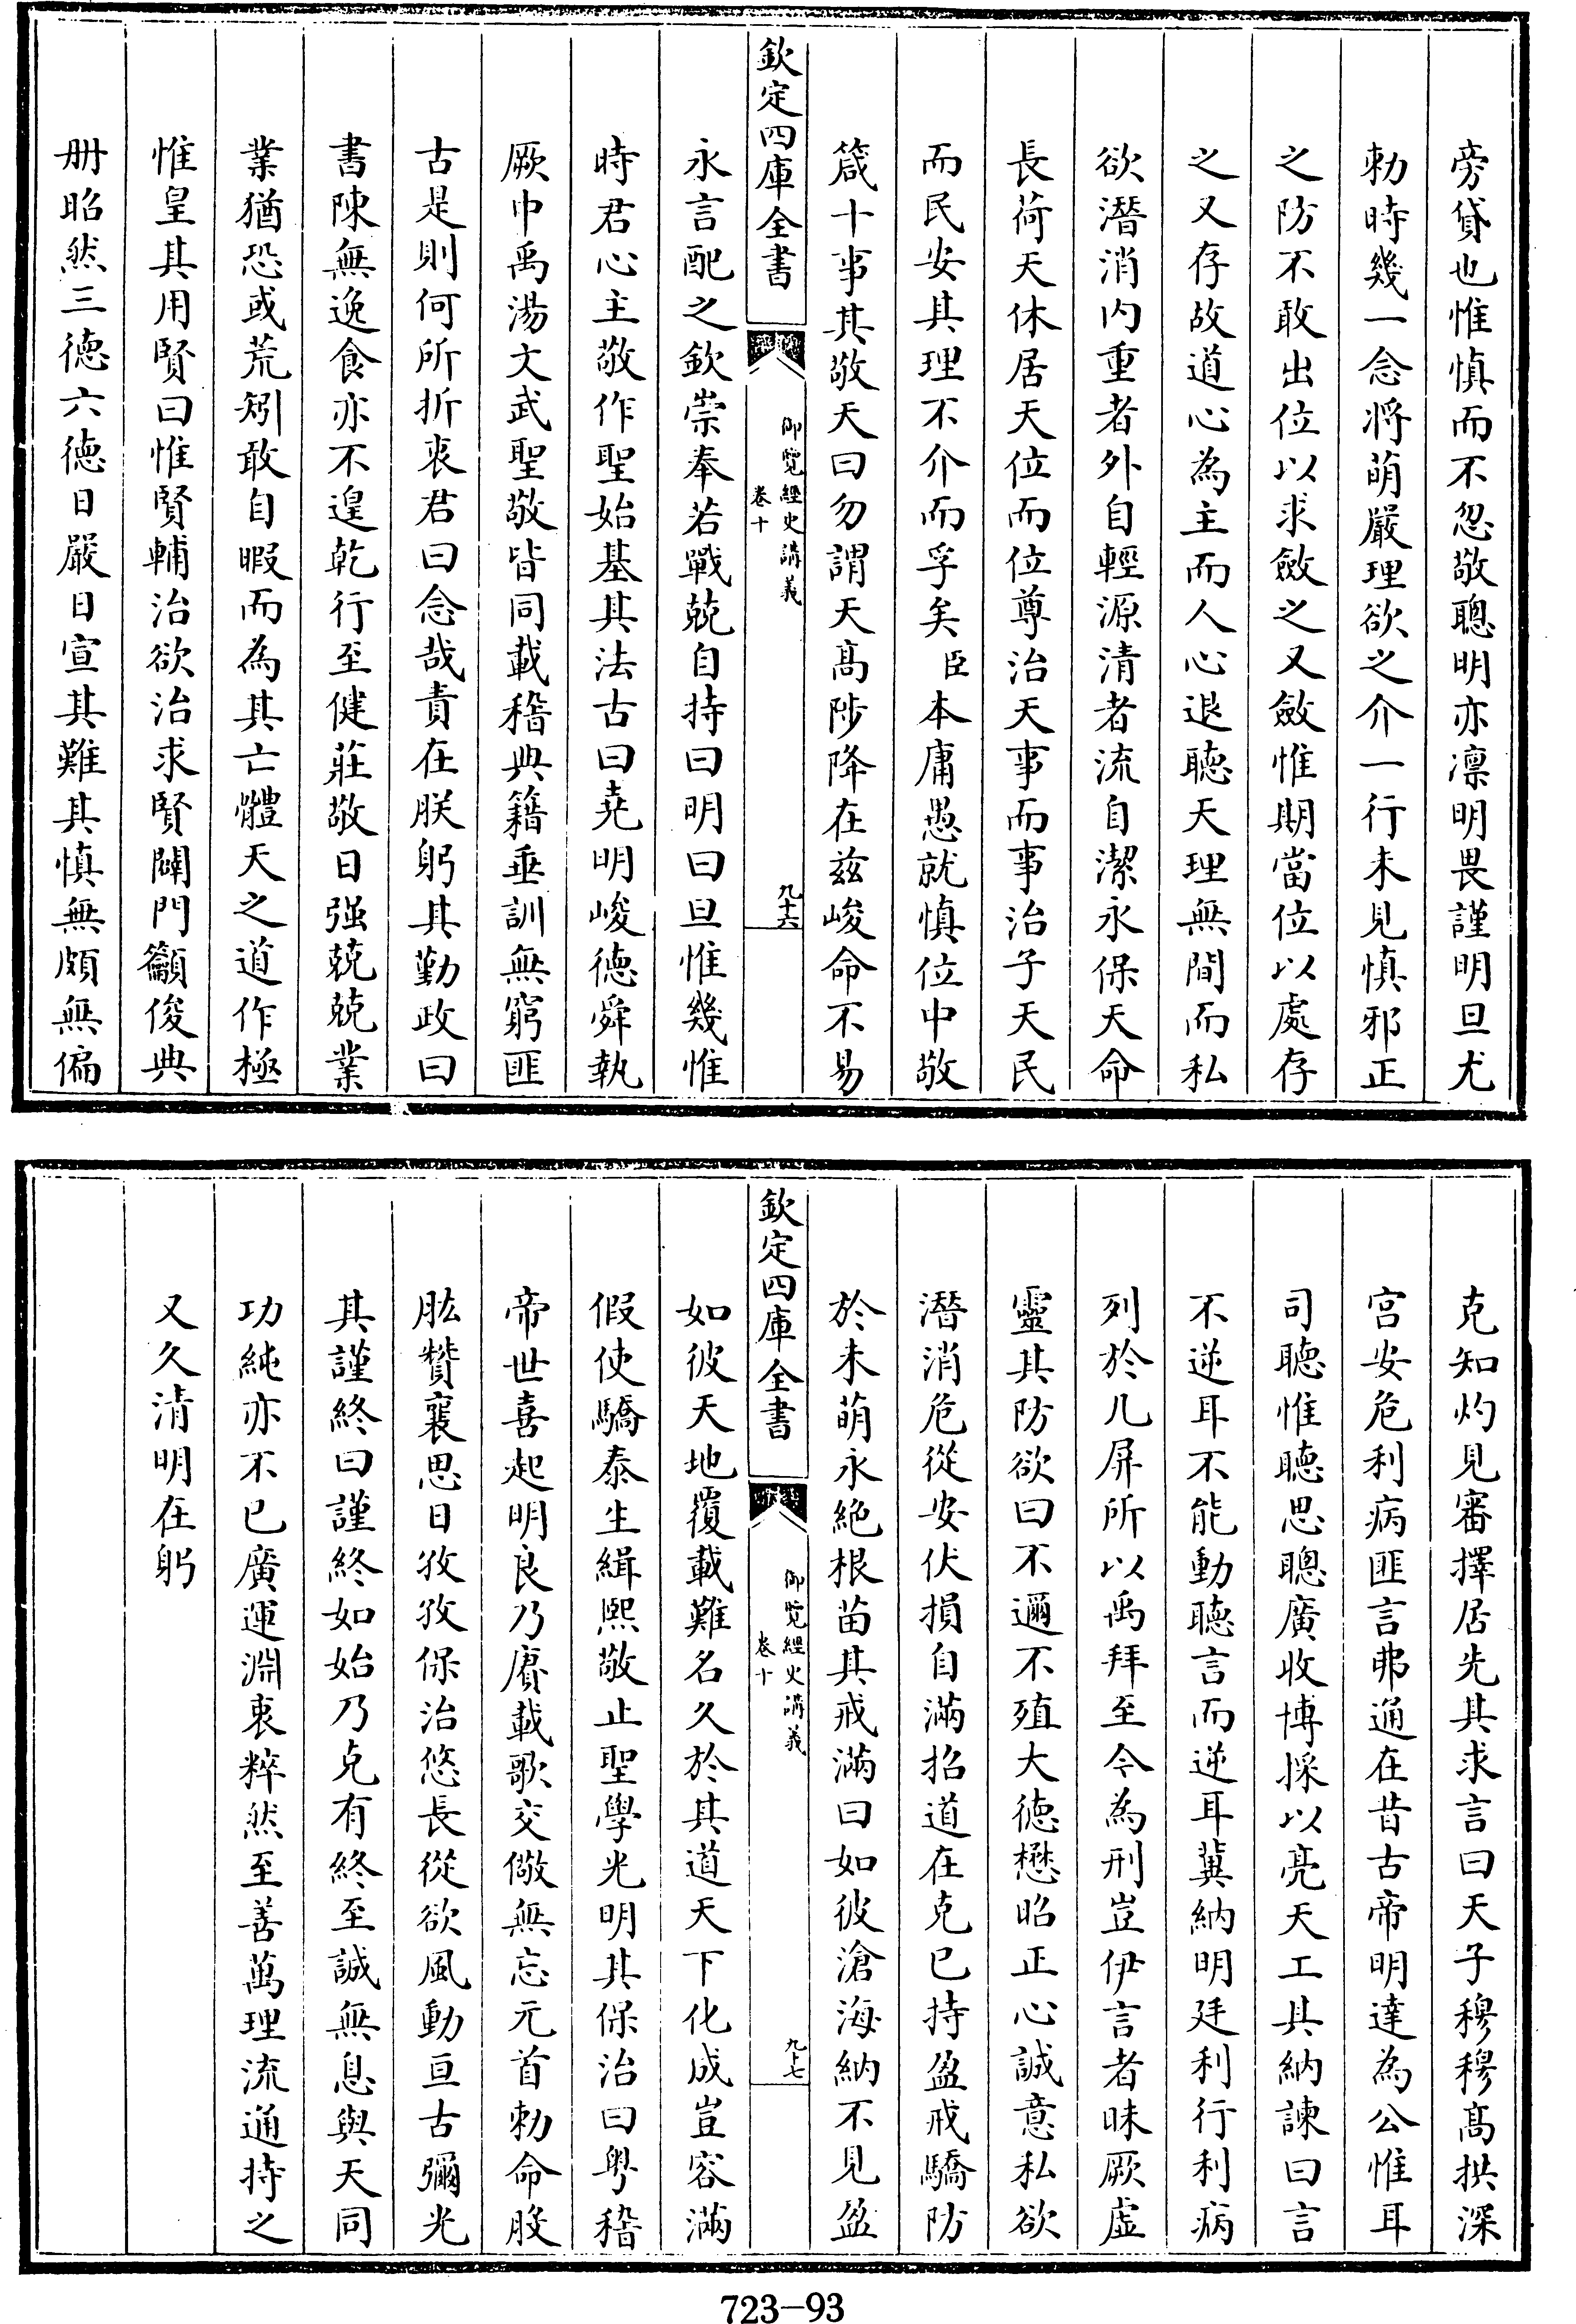 旁貸也惟慎而不忽敬聰明亦凛明畏謹明旦尤
勅時幾一念將萌嚴理欲之介一行未見慎邪正
之防不敢出位以求斂之又斂惟期當位以處存
之又存故道心為主而人心退聽天理無間而私
欲潛消内重者外自輕源清者流自潔永保天命
長荷天休居天位而位尊治天事而事治子天民
而民安其理不介而孚矣臣本庸愚就慎位中敬
箴十事其敬天曰勿謂天髙陟降在兹峻命不易
欽定四庫全書
御覽經史講義
卷十
九十六
永言配之欽崇奉若戰兢自持曰明曰旦惟幾惟
時君心主敬作聖始基其法古曰堯明峻德舜執
厥中禹湯文武聖敬皆同載稽典籍垂訓無窮匪
古是則何所折衷君曰念哉責在朕躬其勤政曰
書陳無逸食亦不遑乾行至健莊敬日强兢兢業
業猶恐或荒矧敢自暇而為其亡體天之道作極
惟皇其用賢曰惟賢輔治欲治求賢闢門籲俊典
册昭然三德六德日嚴日宣其難其慎無頗無偏
克知灼見審擇居先其求言曰天子穆穆髙拱深
宫安危利病匪言弗通在昔古帝明達為公惟耳
司聽惟聽思聰廣收博採以亮天工其納諫曰言
不逆耳不能動聽言而逆耳冀納明廷利行利病
列於几屏所以禹拜至今為刑豈伊言者昧厥虛
靈其防欲曰不邇不殖大德懋昭正心誠意私欲
潛消危從安伏損自滿招道在克已持盈戒驕防
於未萌永絶根苗其戒滿曰如彼滄海納不見盈
欽定四庫全書
御覽經史講義
卷十
九十七
如彼天地覆載難名久於其道天下化成豈容滿
假使驕泰生緝熙敬止聖學光明其保治曰粤稽
帝世喜起明良乃賡載歌交儆無忘元首勅命股
肱贊襄思日孜孜保治悠長從欲風動亘古彌光
其謹終曰謹終如始乃克有終至誠無息與天同
功純亦不已廣運淵衷粹然至善萬理流通持之
又久清明在躬
723-93